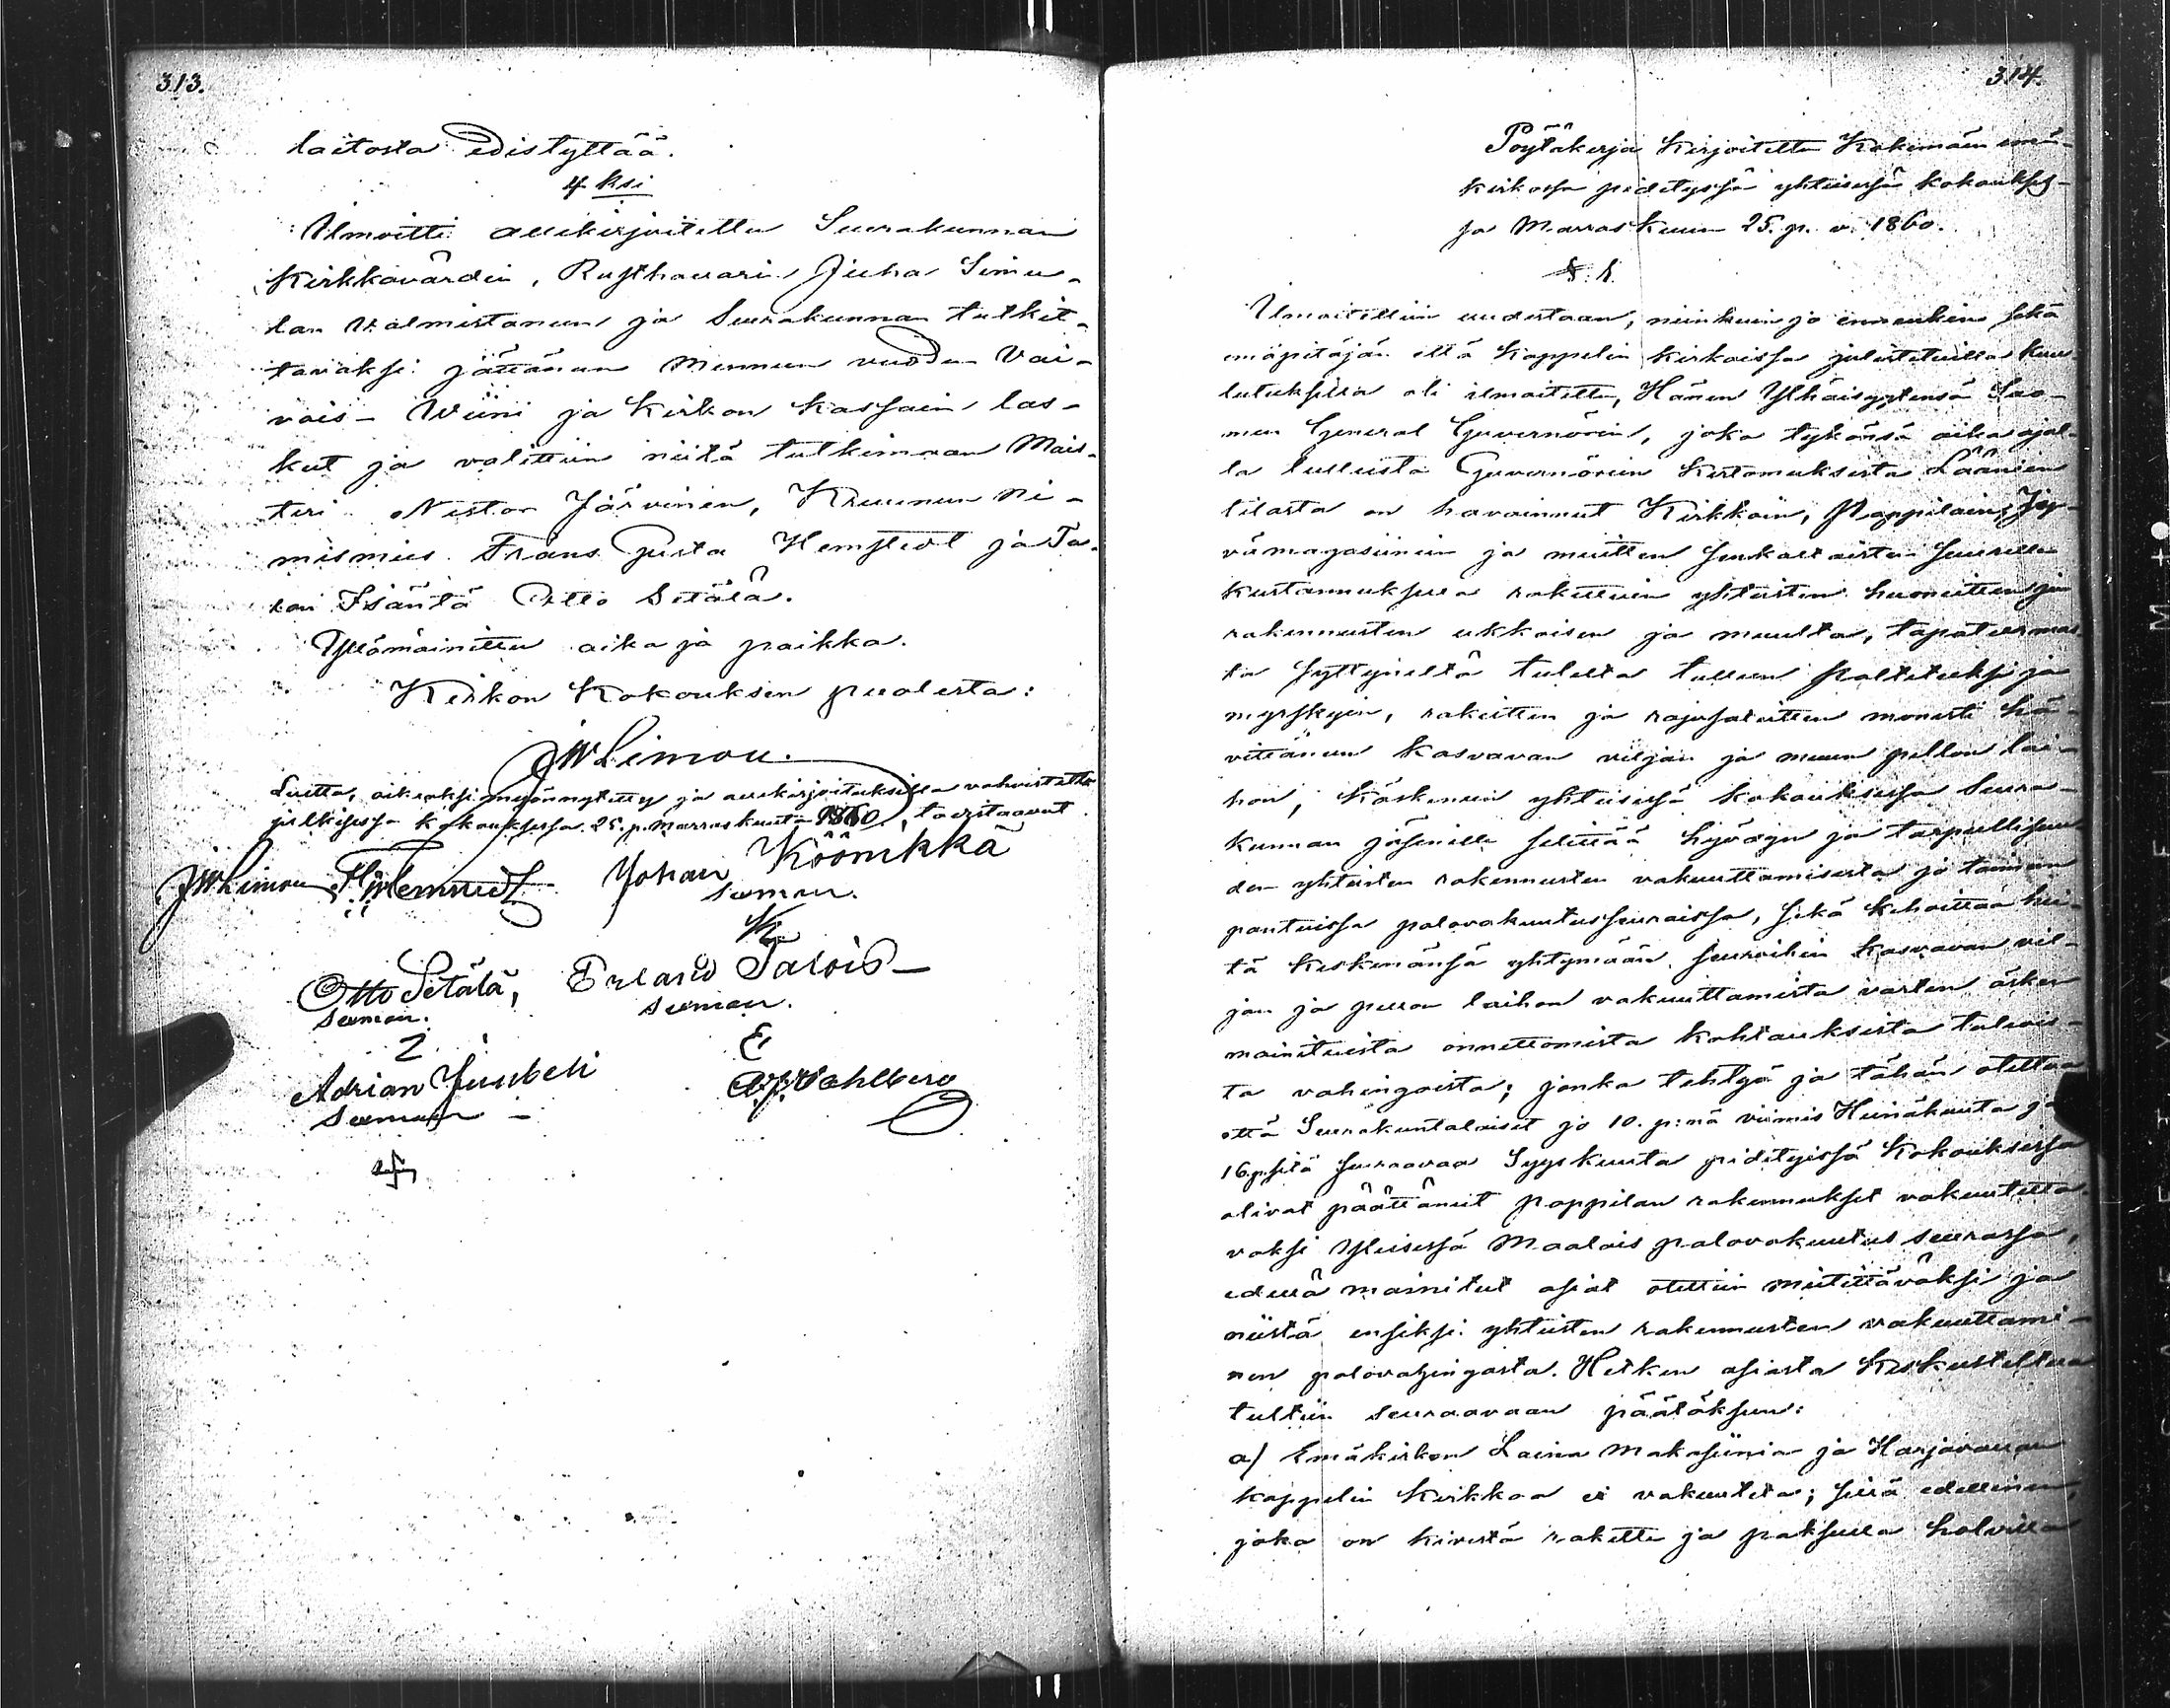 313.
laitosta edistyttää.
4 ksi
Ilmoitti allekirjoitettu Seurakunnan
Kirkkovärdin, Rusthauari Juha Simu-
lan valmistaneen ja Seurakunnan tutkit-
tavaksi jättäneen mennen vuoden Vai-
vois- Wiini ja Kirkon Kassain las-
kut ja valittiin niitä tutkimaan Mais-
teri Nestor Järvinen, Kruunun ni-
mismies Frans Gusta Hemstedt ja Ta-
lon Isäntä Otto Setälä.
Yllämainittu aika ja paikka.
Kirkon Kokouksen puolesta:
JWLimon.
Luettu, oikeaksi myönnytetty ja allekirjoituksilla vahvistettu
julkisessa kokouksessa 25. p. Marraskuuta 1860, toistaavat
JWLimon Johan Köömikkä
Otto Setälä, Erland Talois
Adrian Junbeli Wahlberg
314.
Pöytäkirja Kirjoitettu Kokemäen emä-
kirkossa pidetyssä yhteisessä kokoukses-
sa Marraskuun 25. p. v. 1860.
§. 1.
Ilmoitettiin uudestaan, niinkuin jo ennenkin sekä
emäpitäjän että Kappelin kirkoissa julistetuilla kuu-
lutuksilla oli ilmoitettu, Hänen Ylhäisyytensä Suo-
men General Guvernörin, joka tykönsä aika ajal-
la tulleista Guvernörien Kertomuksista Läänien
tilasta on havainnut Kirkkoin, Pappilain, Jy-
vämagasiinien ja muitten senkaltaisten suurella
kustannuksella rakettuin yhteisten huoneitten ja
rakennusten ukkoisen ja muulta, tapaturmal-
ta syttyneltä tulelta tulleen poltetuksi ja
myrskyen, rakeitten ja rajusateitten monesti hä-
vittäneen kasvavan viljan ja muun pellon lai-
hon, Käskeneen yhteisessä kokouksessa Seura-
kunnan jäsenille selittää hyödyn ja tarpeellisuu-
den yhteisten rakennusten vakuuttamisesta jo toimeen
pantuissa palovakuutusseuroissa, sekä kehoittaa hei-
tä keskenänsä yhtymään seuroihin kasvavan vil-
jan ja pellon laihon vakuuttamista varten äsken
mainituista onnettomista kohtauksista tulevais-
ta vahingoista; jonka tehtyä ja tähän otettua
että Seurakuntalaiset jo 10. p:nä viimis Heinäkuuta ja
16. p. sitä seuraavaa Syyskuuta pidetyissä Kokouksessa
olivat päättäneet pappilan rakennukset vakuutetta-
vaksi Yleisessä Maalais palovakuutus seurassa,
edellä mainitut asiat otettiin mietittäväksi ja
niistä ensiksi yhteisten rakennusten vakuuttami-
nen palovahingosta. Hetken asiasta keskusteltua
tultiin seuraavaan päätökseen:
a) Emäkirkon Laina Makasiinia ja Harjavallan
kappelin Kirkkoa ei vakuuteta; sillä edellinen,
joka on kivestä rakettu ja paksulla holvilla